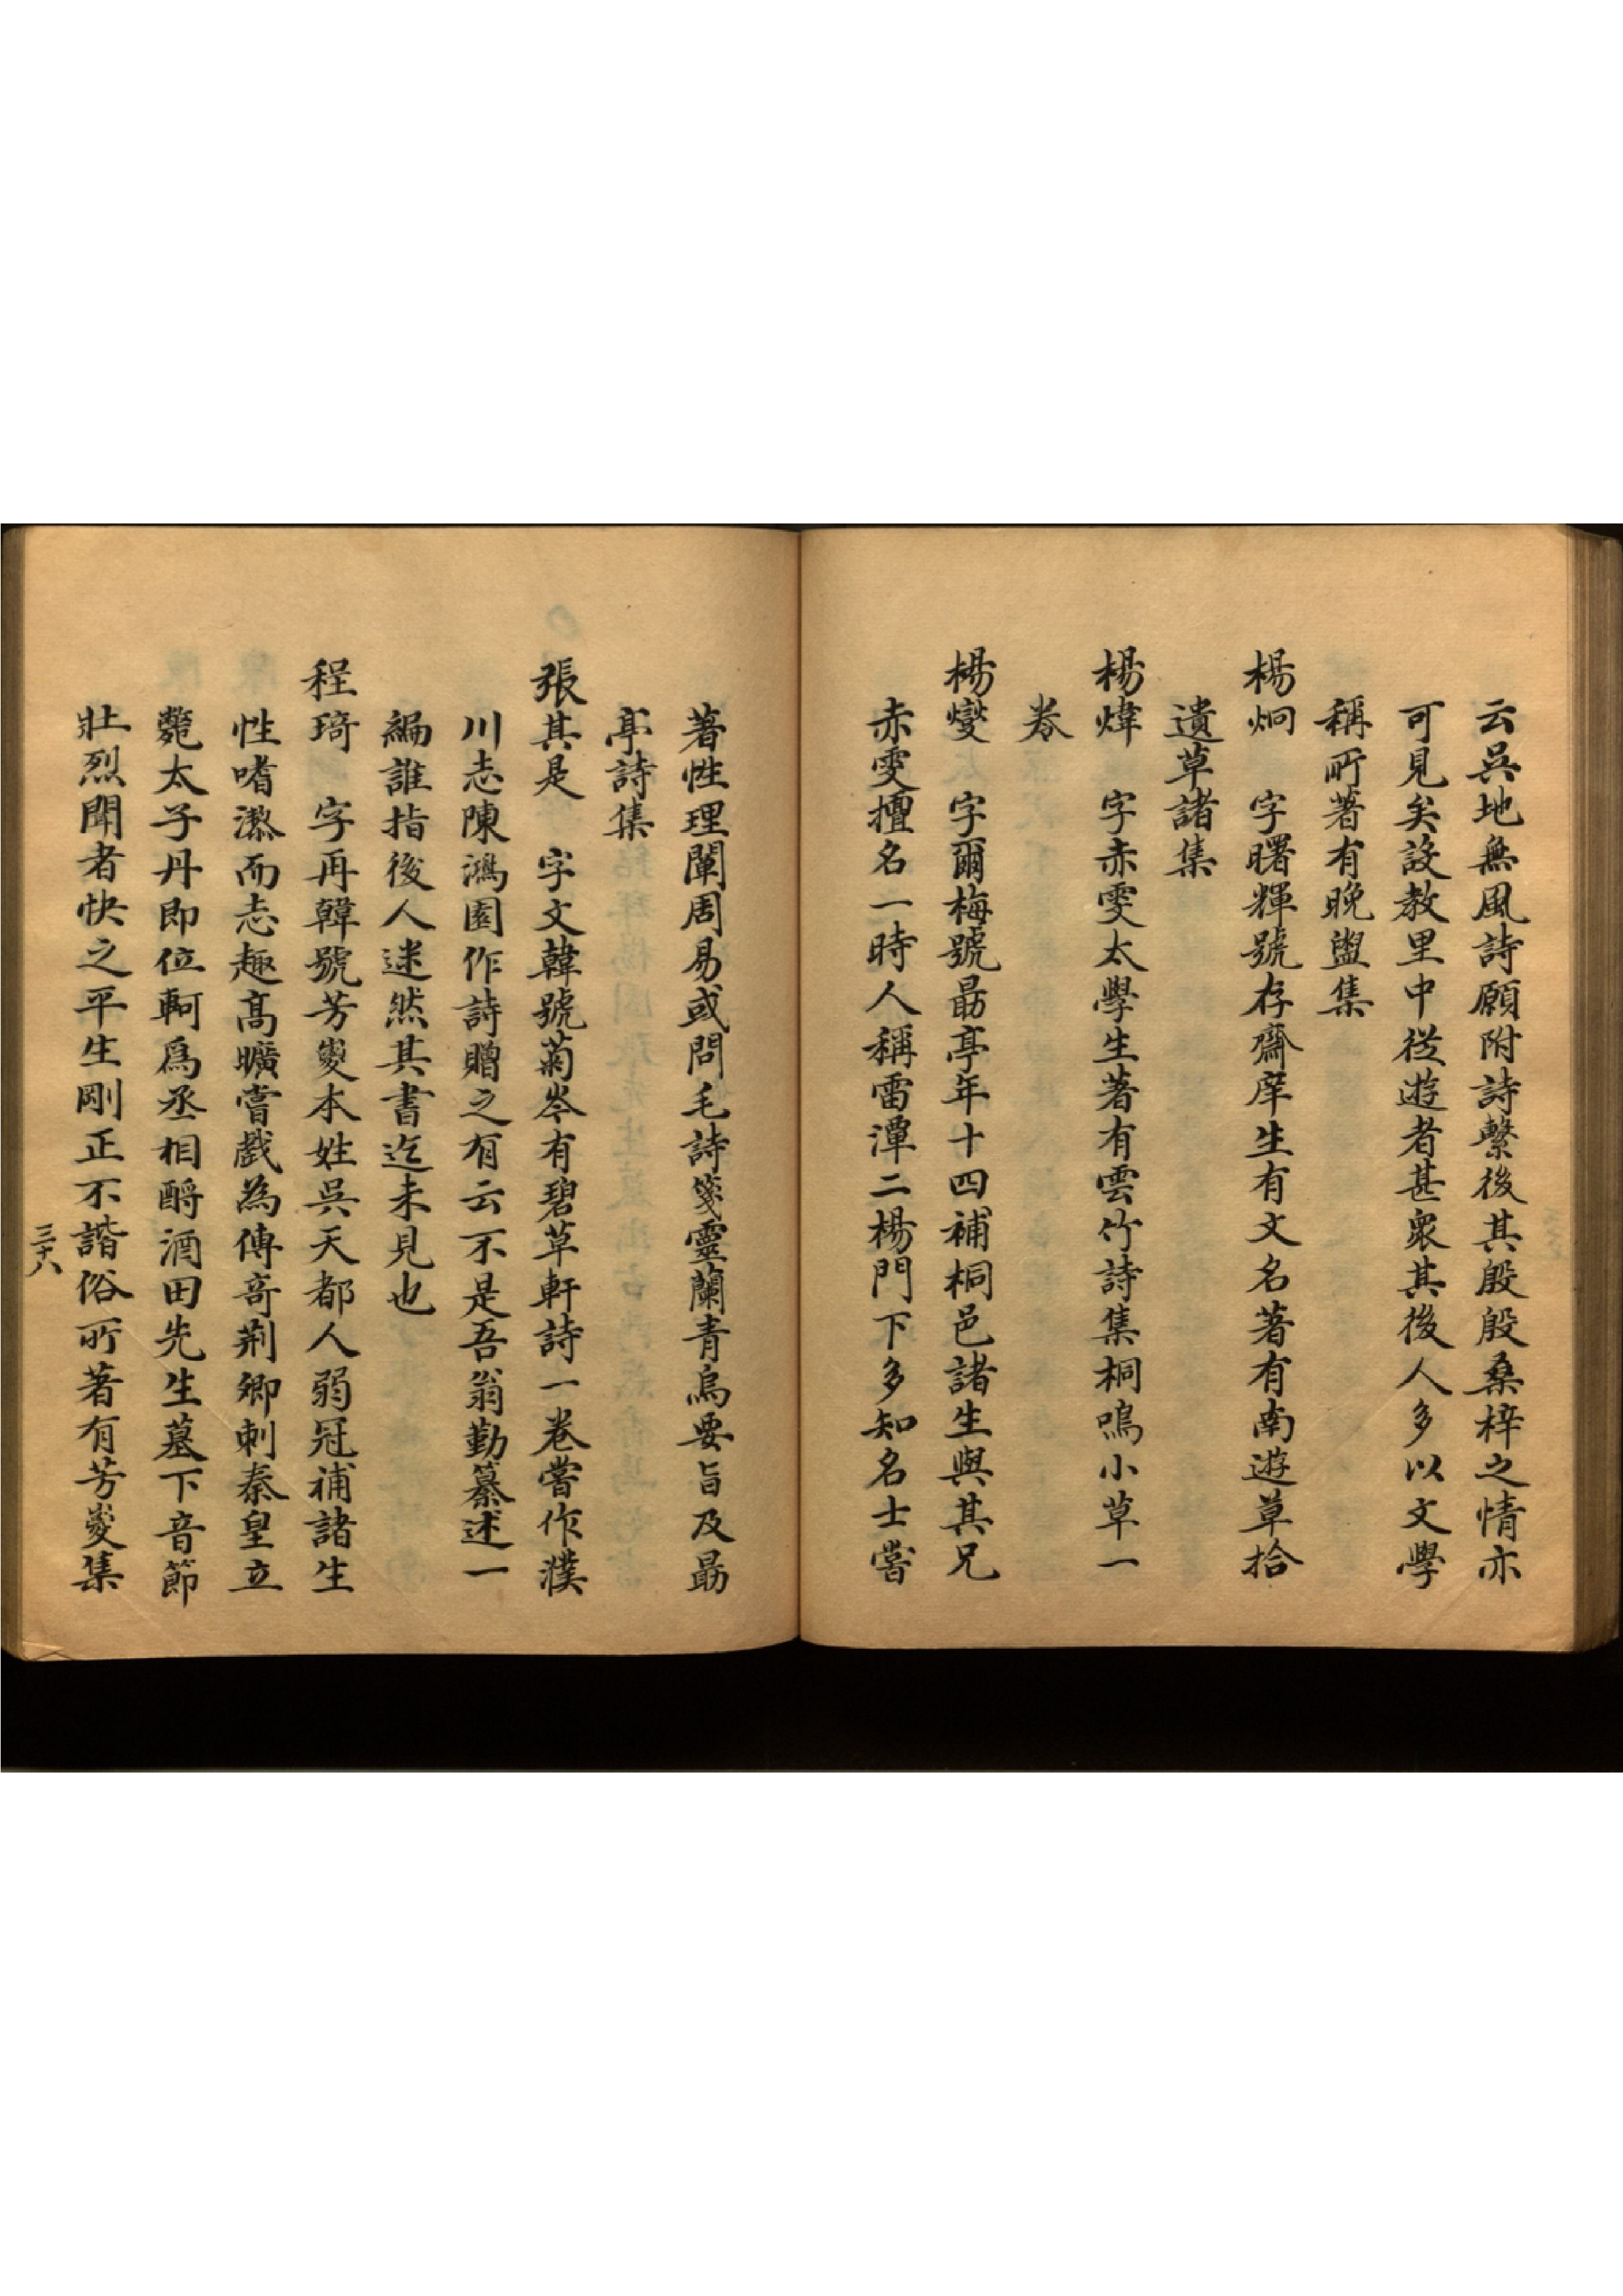 云吳地無風詩願附詩繫後其殷殷桑梓之情亦
可見矣設教里中從遊者甚衆其後人多以文學
稱所著有晚盥集
楊炯　字曙輝號存齋庠生有文名著有南遊草拾
遺草諸集
楊煒　字赤雯太學生著有雲竹詩集桐鳴小草一
卷
楊燮　字爾梅號勗亭年十四補桐邑諸生與其兄
赤雯擅名一時人稱雷潭二楊門下多知名士嘗
著性理闡周易或問毛詩箋靈蘭青烏要旨及勗
亭詩集
張其是　字文韓號菊岑有碧草軒詩一卷嘗作濮
川志陳鴻園作詩贈之有云不是吾翁勤纂述一
編誰指後人迷然其書迄未見也
程琦　字再韓號芳嵏本姓吳天都人弱冠補諸生
性嗜㵎而志趣高曠嘗戲為傳奇荆卿刺秦皇立
斃太子丹即位軻爲丞相酹酒田先生墓下音節
壯烈聞者快之平生剛正不諧俗所著有芳嵏集
三十八